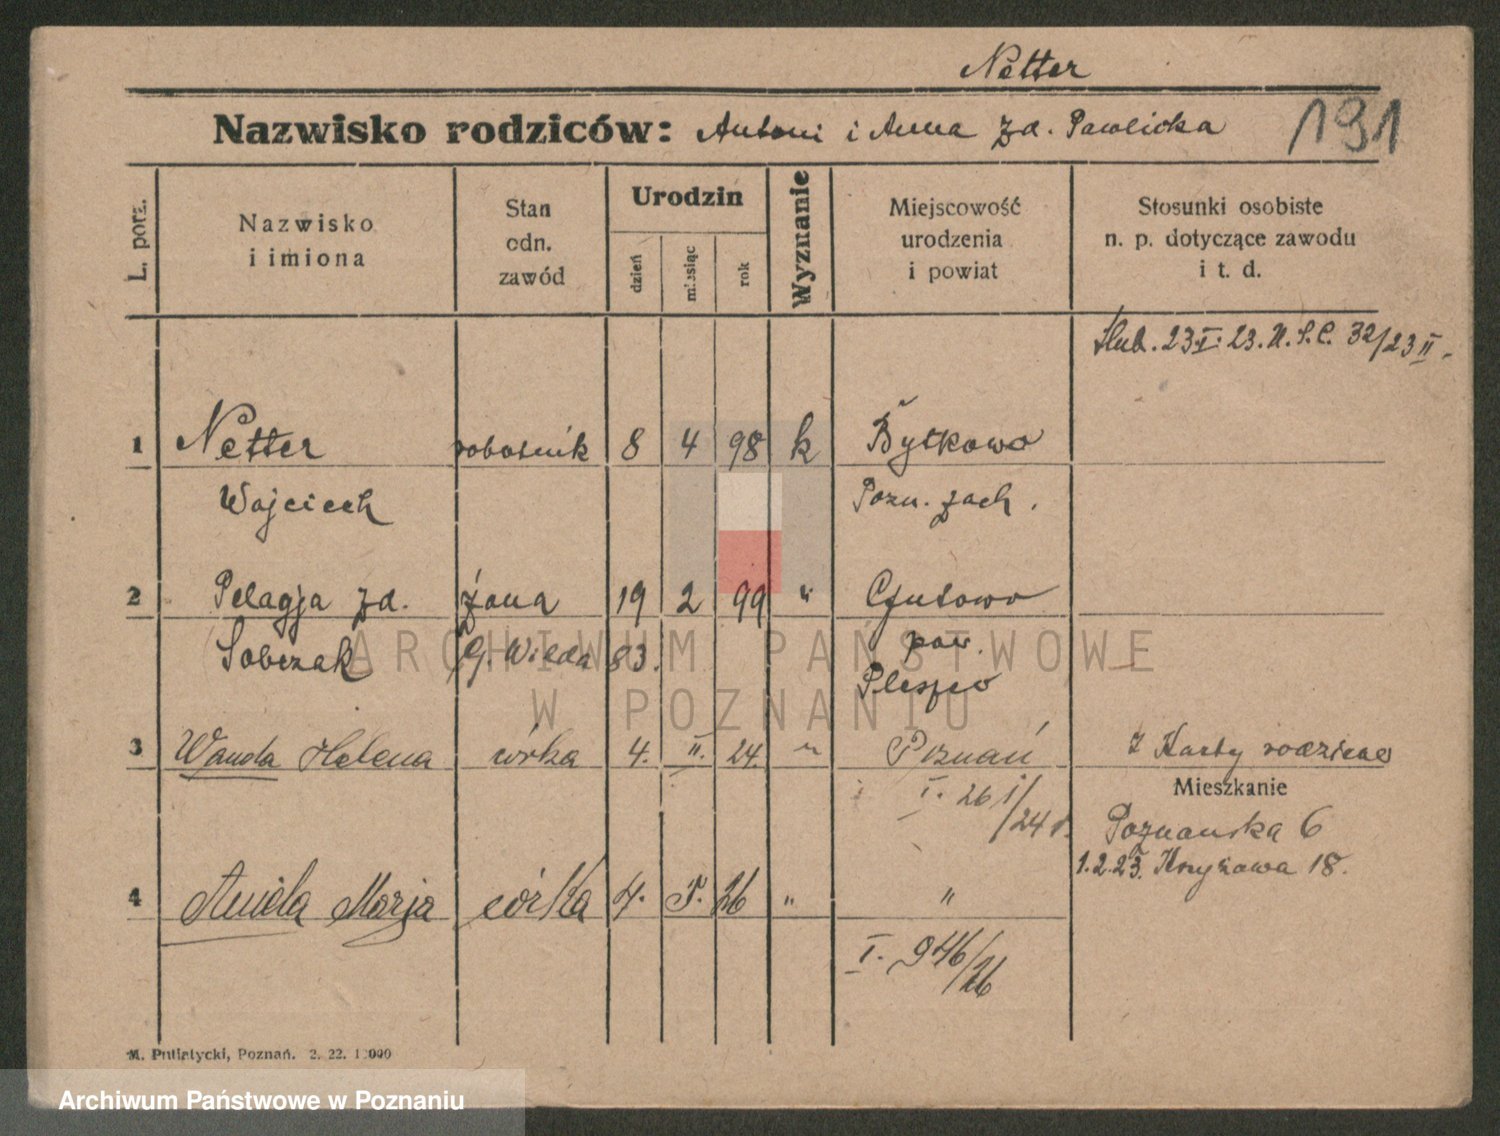 Netter
Nazwisko rodziców: Antoni i Anna zd. Pawlicka
191
L. porz.
Nazwisko
i imiona
Stan
odn.
zawód
Urodzin
dzień
miesiąc
rok
Wyznanie
Miejscowość
urodzenia
i powiat
Stosunki osobiste
n. p. dotyczące zawodu
i t. d.
Ślub. 23.I.23. U.S.C. 32/23 II.
1 Netter robotnik 8 4 98 k Bytkowo
Wojciech Pozn. zach.
2 Pelagja zd. żona 19 2 99 " Czutowo
Sobczak G. Wilda 83. pow.
Pleszew
3 Wanda Helena córka 4. II. 24. " Poznań Z Karty rodziców
I. 261/24
Mieszkanie
Poznańska 6
1.2.23. Krzyżowa 18.
4 Aniela Marja córka 4. 5. 26 " "
I. 946/26
M. Putiatycki, Poznań. 2. 22. 1000
ARCHIWUM PAŃSTWOWE
W POZNANIU
Archiwum Państwowe w Poznaniu